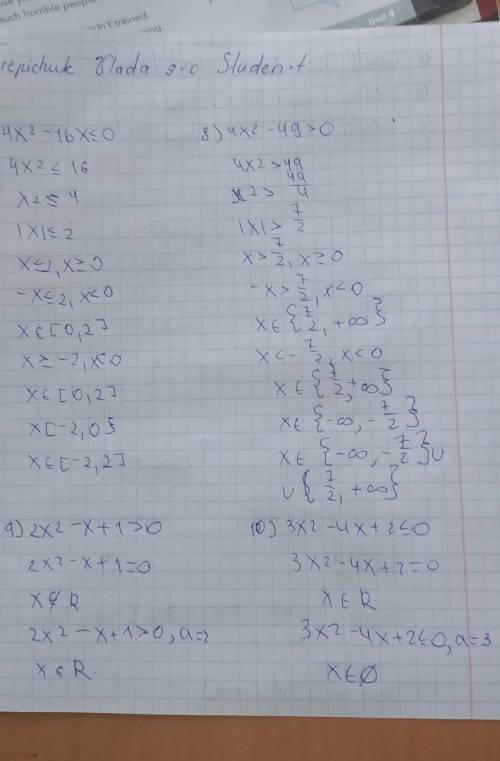 such horrible people
dn't trained.
Unit 9
repichuk Vlada 9-c Student
4x² - 16x ≤ 0
4x2 ≤ 16
x2 ≤ 4
|x| ≤ 2
x ≤ 2, x ≥ 0
-x ≤ 2, x < 0
x ∈ [0, 2]
x ≥ -2, x < 0
x ∈ [0, 2]
x [-2, 0}
x ∈ [-2, 2]
8) 4x² - 49 > 0
4x2 > 49
x2 > 49/4
|x| > 7/2
x > 7/2, x ≥ 0
-x > 7/2, x < 0
x ∈ {7/2, +∞}
x < -7/2, x < 0
x ∈ {7/2, +∞}
x ∈ {-∞, -7/2}
x ∈ {-∞, -7/2} U
U {7/2, +∞}
9) 2x² - x + 1 > 0
2x² - x + 1 = 0
x ∉ R
2x² - x + 1 > 0, a = 2
x ∈ R
10) 3x² - 4x + 2 ≤ 0
3x² - 4x + 2 = 0
x ∈ R
3x² - 4x + 2 ≤ 0, a = 3
x ∈ Ø